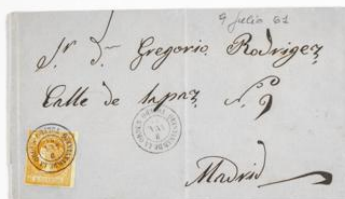 9 Julio 61
Sr. Dn Gregorio Rodrigez
Calle de la paz, N. 9
Madrid